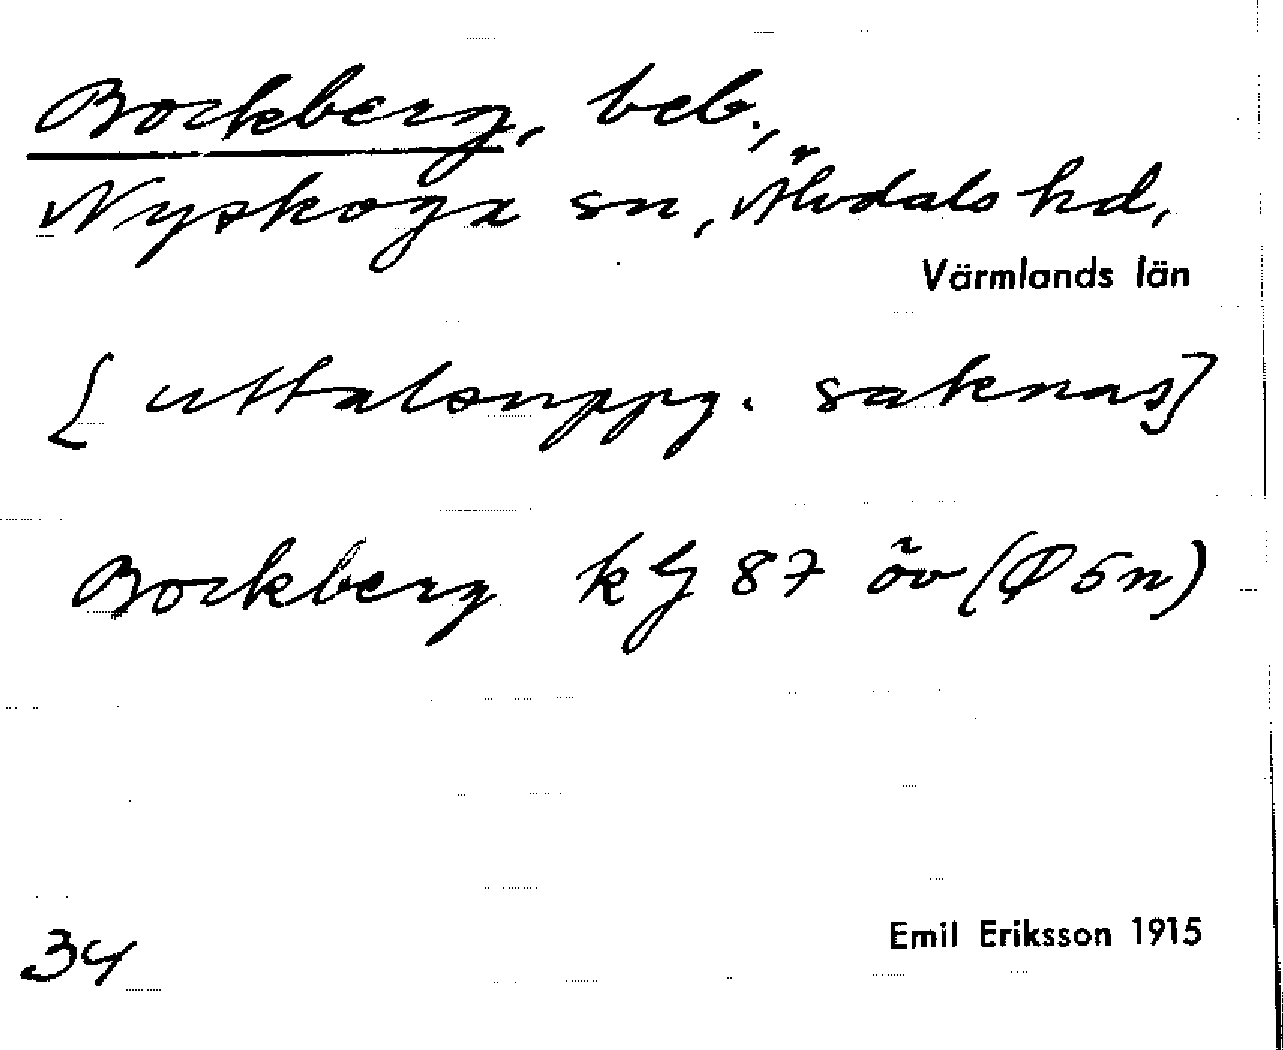 Bockberg, beb.,
Nyskoga sn, Älvdals hd,
Värmlands län
[uttalsuppg. saknas]
Bockberg kG 87 öv (Ø 5n)
34
Emil Eriksson 1915